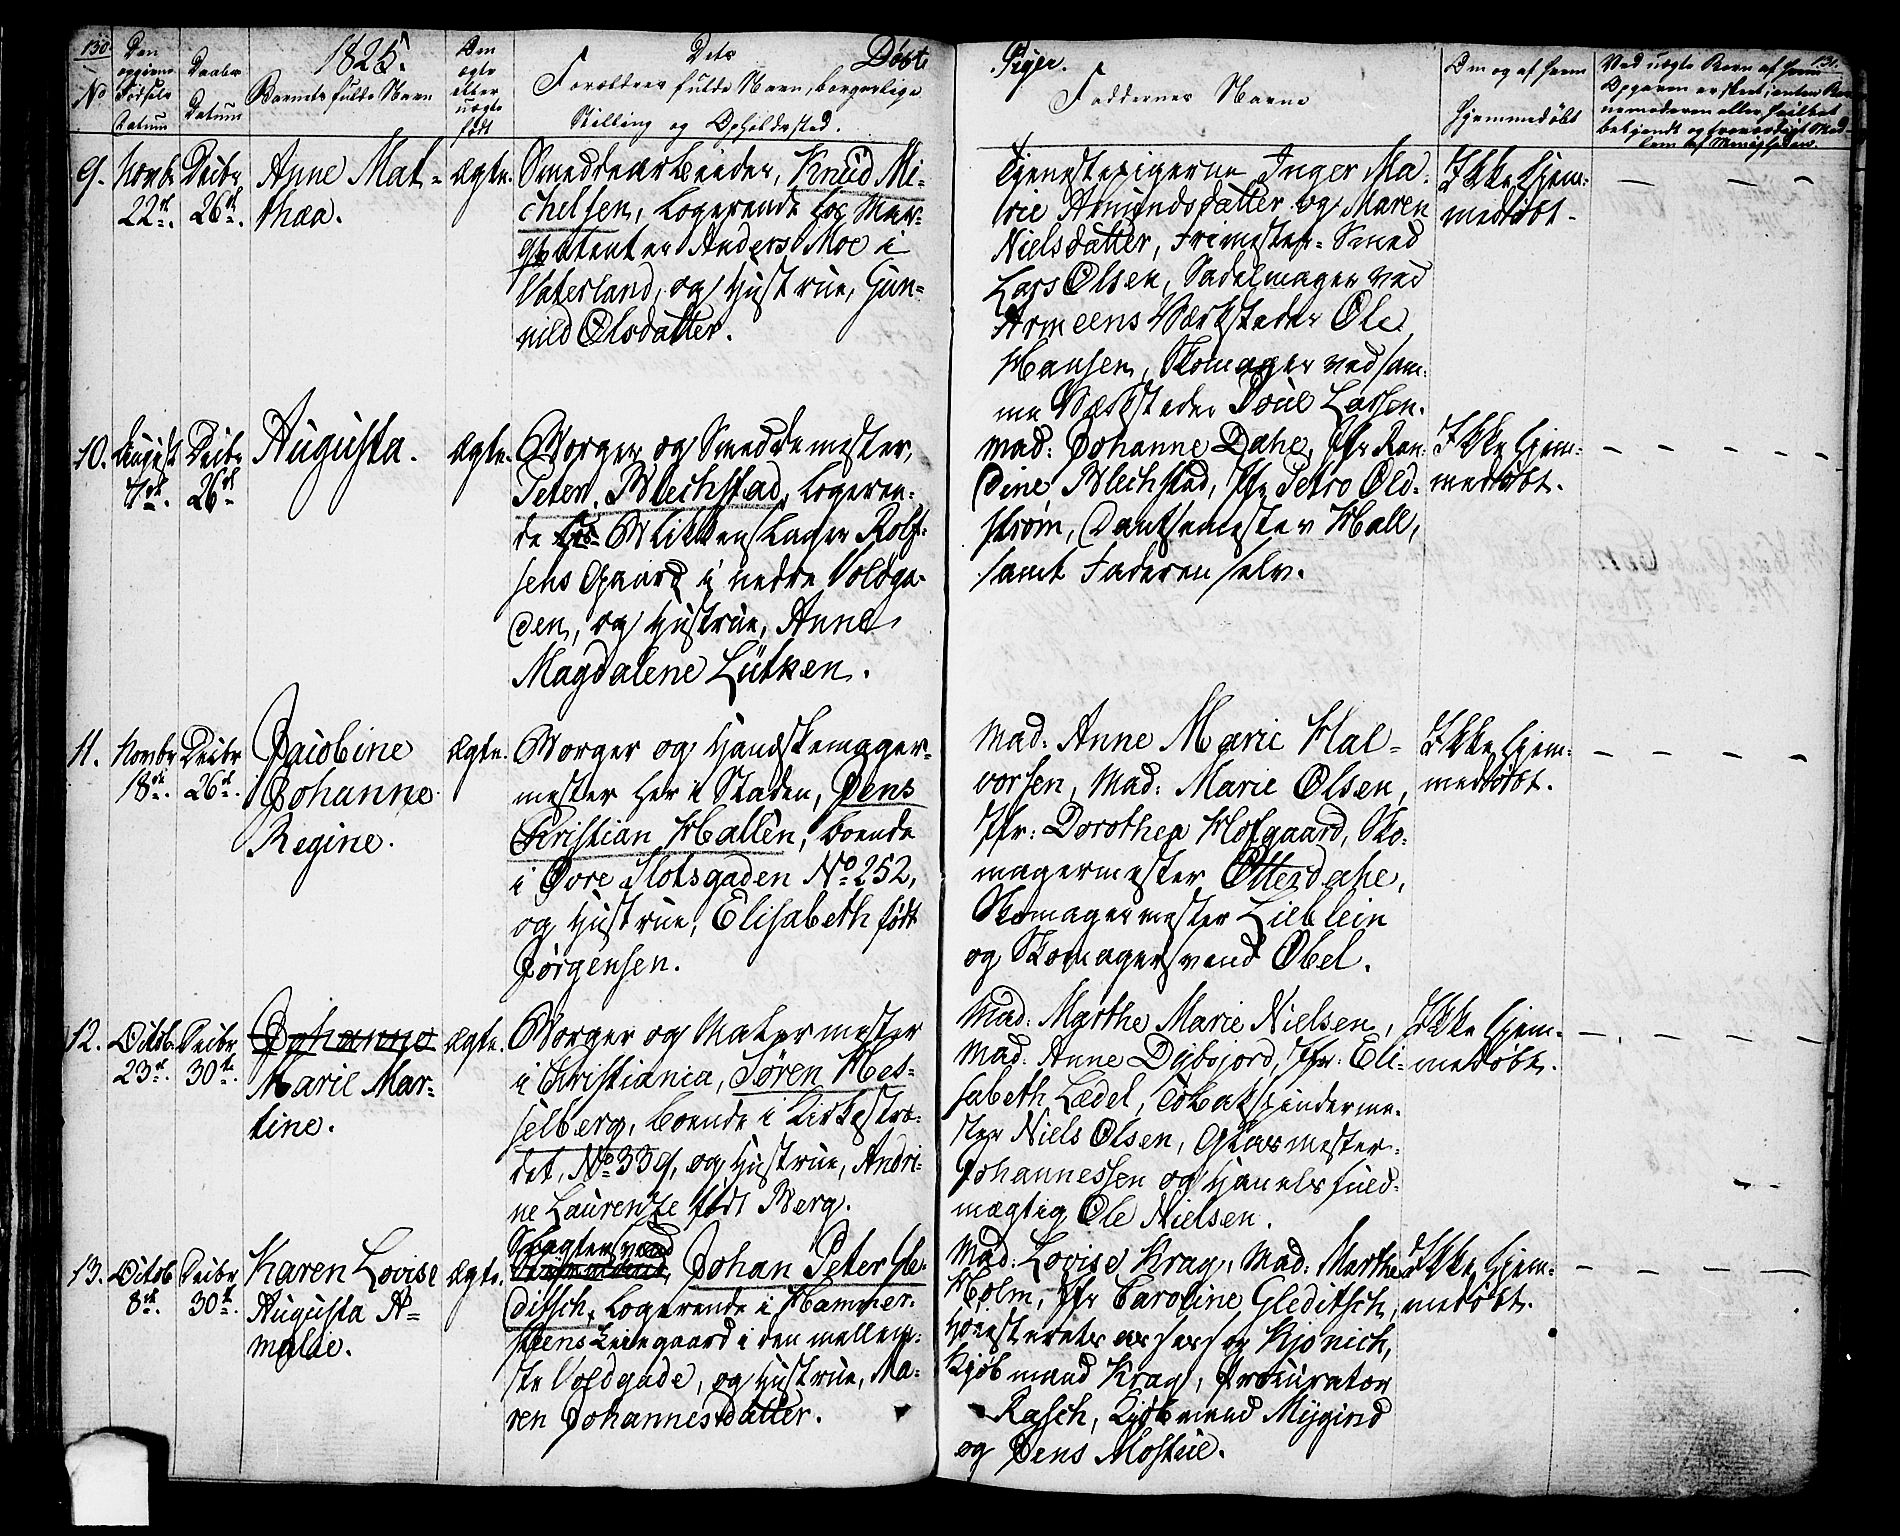 130.
1825.
Døbte
Piger.
131.
No
Den
opgivne
Fødsels
Datum
Daabs
Datum
Barnets fulde Navn
Om
ægte
eller
uægte
født
Dets
Forældres fulde Navn, borgerlige
Stilling og Opholdssted.
Faddernes Navne
Om og af hvem
hjemmedøbt
Ved uægte Børn af hvem
9.
Novbr
22de.
Decbr
26de.
Anne Mat-
thea.
ægte.
Smedrearbeider, Knud Mi-
chelsen, logerende hos Mar-
qvetenter Anders Moe i
Vaterland, og Hustrue, Gun-
nild Olsdatter.
Tjenestepigerne Inger Ma-
rie Amundsdatter og Maren
Nielsdatter, Frimester-Smed
Lars Olsen, Sadelmager ved
Armeens Værksteder Ole
Hansen, Skomager ved sam-
me Værksteder Poul Larsen.
Ikke hjem-
medøbt.
10.
August
7de.
Decbr
26de
Augusta.
ægte.
Borger og Smeddemester,
Peter Blechstad, logeren-
de hos Blikkenslager Rolf-
sens Gaard i nedre Voldga-
den, og Hustrue, Anne
Magdalene Lütken.
Mad: Johanne Dahe, Jfr Ran-
dine Blechstad, Jfr Petro Old-
strøm, Dantsemester Hall,
samt Faderen selv.
Ikke hjem-
medøbt.
11.
Novbr
18de.
Decbr
26de.
Jacobine
Johanne
Regine.
ægte.
Borger og Handskemager-
mester her i Staden, Jens
Christian Hallén, boende
i Øvre Slotsgaden No 252,
og Hustrue, Elisabeth født
Jørgensen.
Mad: Anne Marie Hal-
vorsen, Mad: Marie Olsen,
Jfr: Dorothea Hofgaard, Sko-
magermester Otterdahe,
Skomagermester Lieblein
og Skomagersvend Obel.
Ikke hjem-
medøbt.
12.
Octob.
23de.
Decbr
30te.
Johanne
Marie Mar-
tine.
ægte.
Borger og Malermester
i Christiania, Søren Hes-
selberg, boende i Kirkestræ-
det, No 339, og Hustrue, Andri-
ne Laurentze født Berg.
Mad: Marthe Marie Nielsen,
Mad: Anne Dybsjord, Jfr: Eli-
sabeth Lædel, Tobakspinderme-
ster Niels Olsen, Glarmester
Johannessen og Handelsfuld-
mægtig Ole Nielsen.
Ikke hjem-
medøbt.
13.
Octob
8de.
Decbr
30te.
Karen Lovise
Augusta A-
malie.
ægte.
Slagtersvend
Johan Peter Gle-
ditsch, logerende i Hammer-
stens Leiegaard i den mellem-
ste Voldgade, og Hustrue, Ma-
ren Johannesdatter.
Mad: Lovise Krag, Mad: Marthe
Holm, Jfr Caroline Gleditsch,
Høiesteretsassessor Kjønich,
Kjøbmand Krag, Procurator
Rasch, Kjøbmand Mygind
og Jens Mostue.
Ikke hjem-
medøbt.